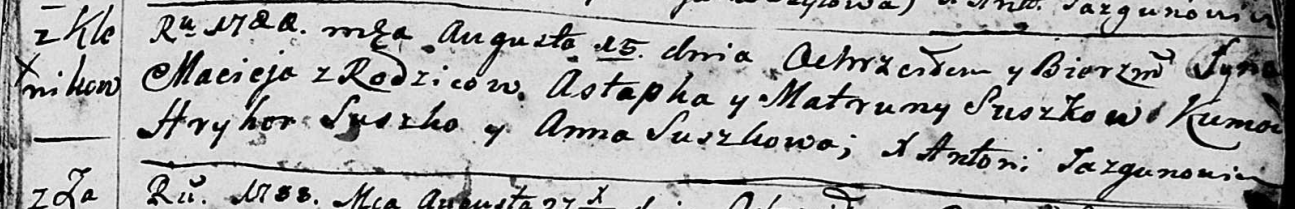 X Ant. Jazgunowicz
z Kle Ru 1788. mca Augusta 15. dnia Ochrzciłem y Bierzm Syna
X nikow Macieja z Rodzicow Astapha y Matruny Suszkow Kumow
Hryhor Suszko y Anna Suszkowa; X Antoni Jazgunowicz
z Za Ru. 1788. Mca Augusta 27